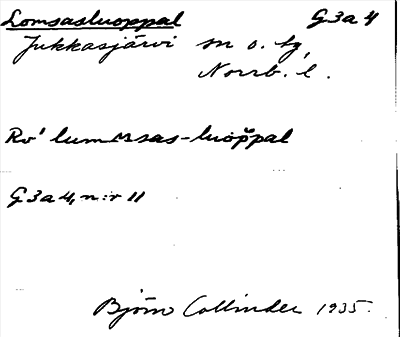 Lomsasluoppal G3a4
Jukkasjärvi sn o. tg,
Norrb. l.
Rv' lumsas-luoppal
G3a4, n:r 11
Björn Collinder 1935.